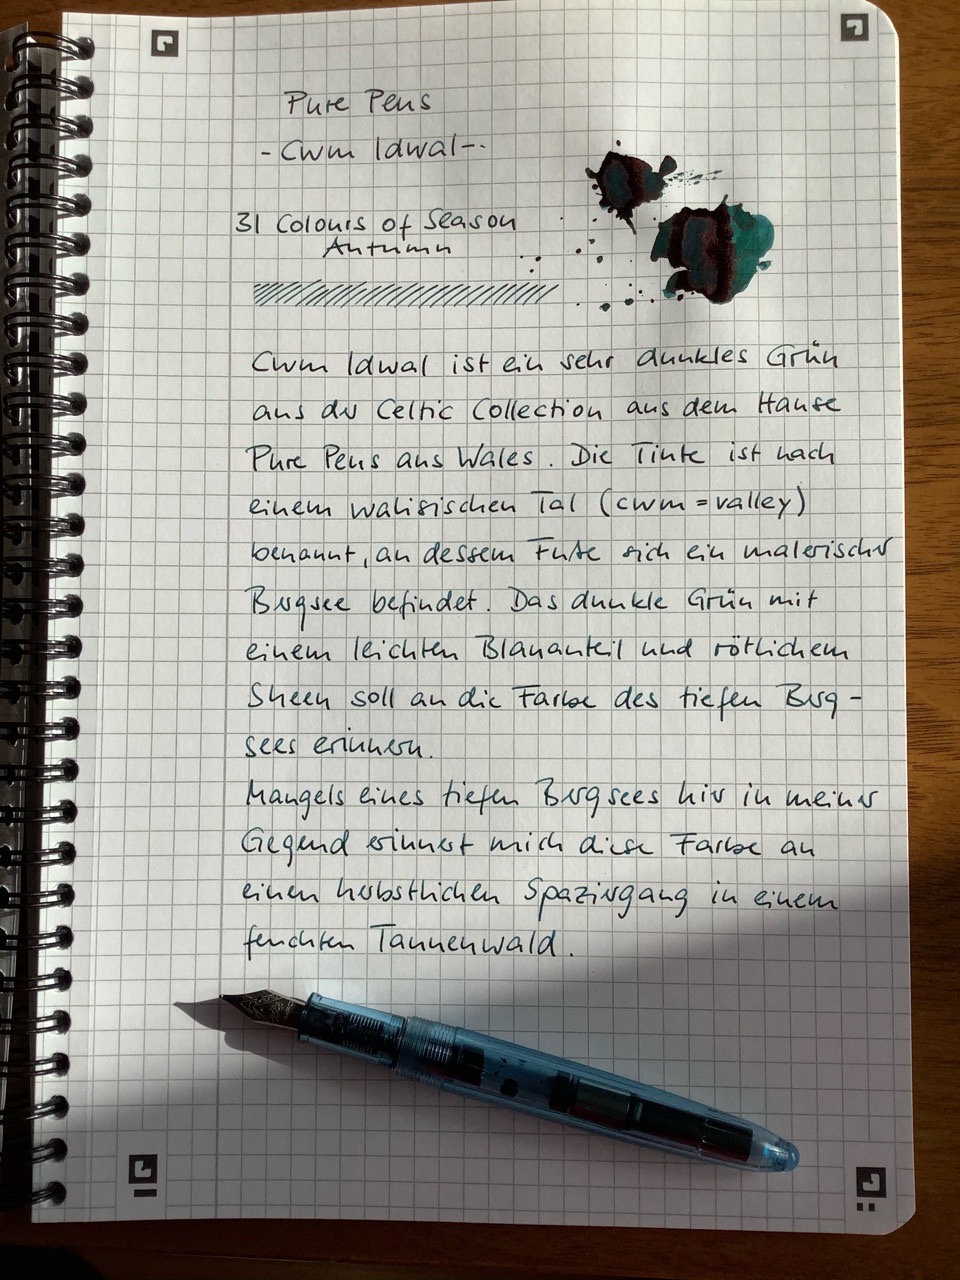 Pure Pens
- Cwm Idwal -
31 Colours of Season
Autumn
Cwm Idwal ist ein sehr dunkles Grün
aus der Celtic Collection aus dem Hause
Pure Pens aus Wales. Die Tinte ist nach
einem walisischen Tal (cwm = valley)
benannt, an dessem Fuße sich ein malerischer
Bergsee befindet. Das dunkle Grün mit
einem leichten Blauanteil und rötlichem
Sheen soll an die Farbe des tiefen Berg-
sees erinnern.
Mangels eines tiefen Bergsees hier in meiner
Gegend erinnert mich diese Farbe an
einen herbstlichen Spaziergang in einem
feuchten Tannenwald.